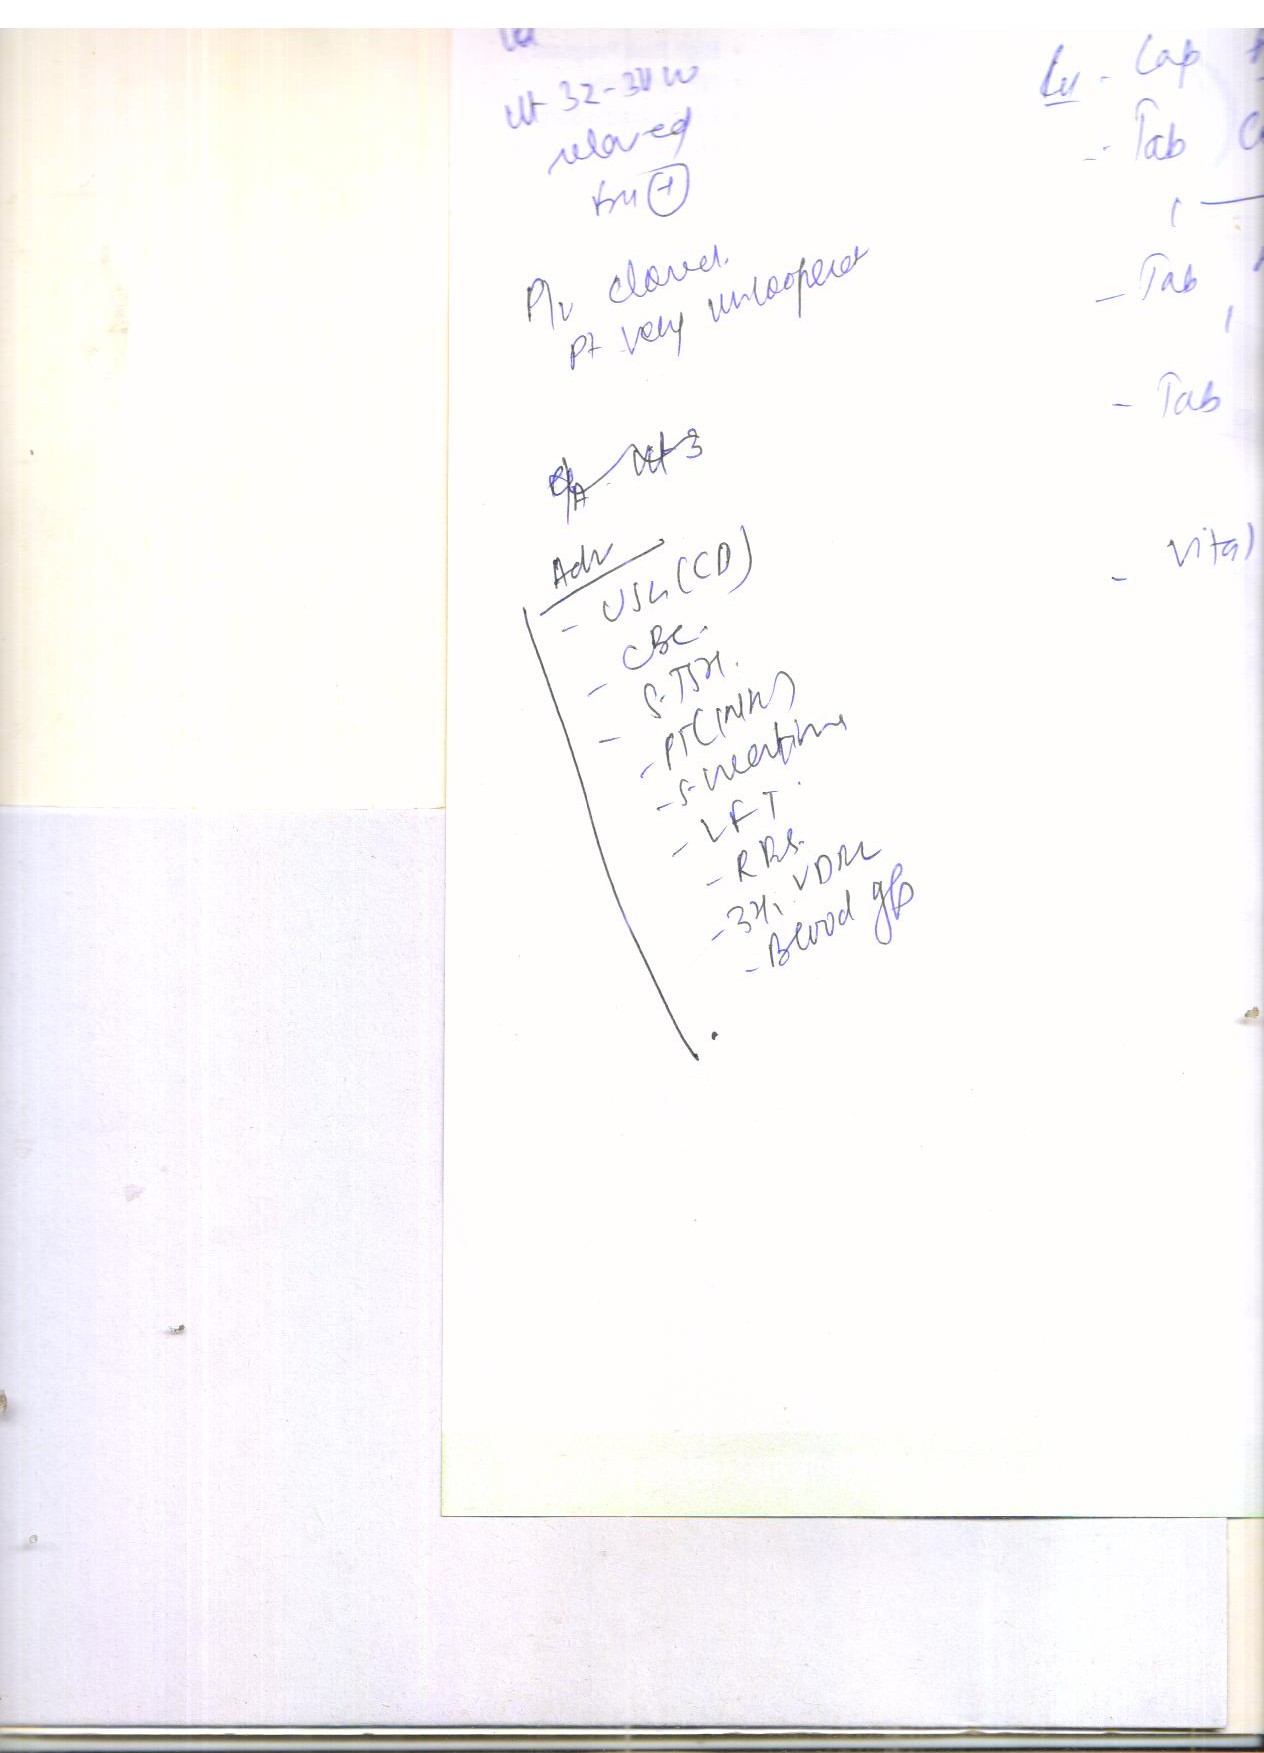 Ut 32-34 W
relaxed
FHS (+)
P/v closed.
Pt very uncooperat
P/A Ut 3
Adv
- USG (CD)
- CBC.
- S.TSH.
- PT (INR)
- S. creatinine
- LFT.
- RBS.
- 3H, VDRL
- Blood gp
Cap
- Tab
- Tab
- Tab
- Vital